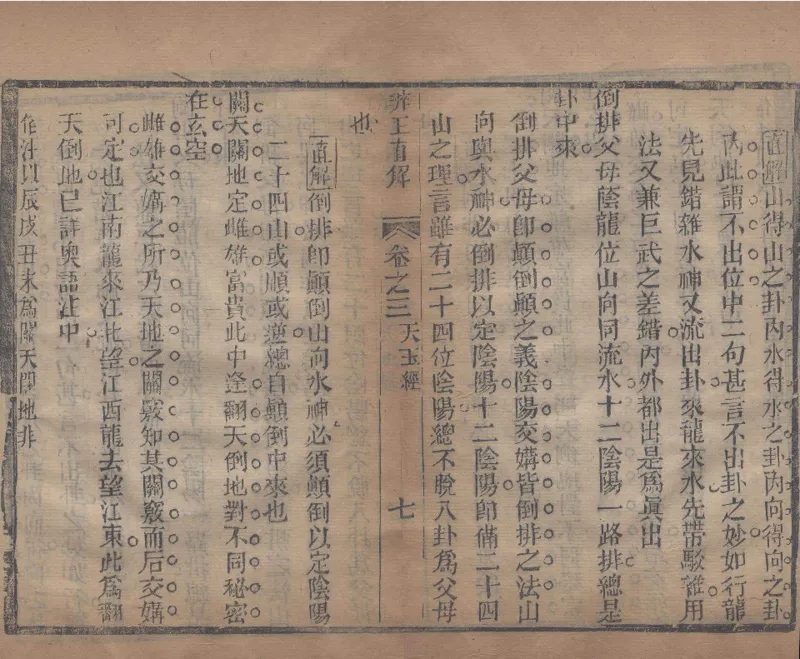 直解山得山之卦內水得水之卦內向得向之卦
內此謂不出位中二句甚言不出卦之妙如行龍
先見錯雜水神又流出卦來龍來水先帶駁雜用
法又兼巨武之差錯內外都出是爲眞出
倒排父母蔭龍位山向同流水十二陰陽一路排總是
卦中來
倒排父母卽顚倒顚之義陰陽交媾皆倒排之法山
向與水神必倒排以定陰陽十二陰陽卽備二十四
山之理言雖有二十四位陰陽總不脫八卦爲父母
也
辨正直解
卷之三
天玉經
七
直解倒排卽顚倒山向水神必須顚倒以定陰陽
二十四山或順或逆總自顚倒中來也
關天關地定雌雄富貴此中逢翻天倒地對不同秘密
在玄空
雌雄交媾之所乃天地之關竅知其關竅而后交媾
可定也江南龍來江北望江西龍去望江東此爲翻
天倒地已詳奧語注中
俗注以辰戌丑未爲關天關地非